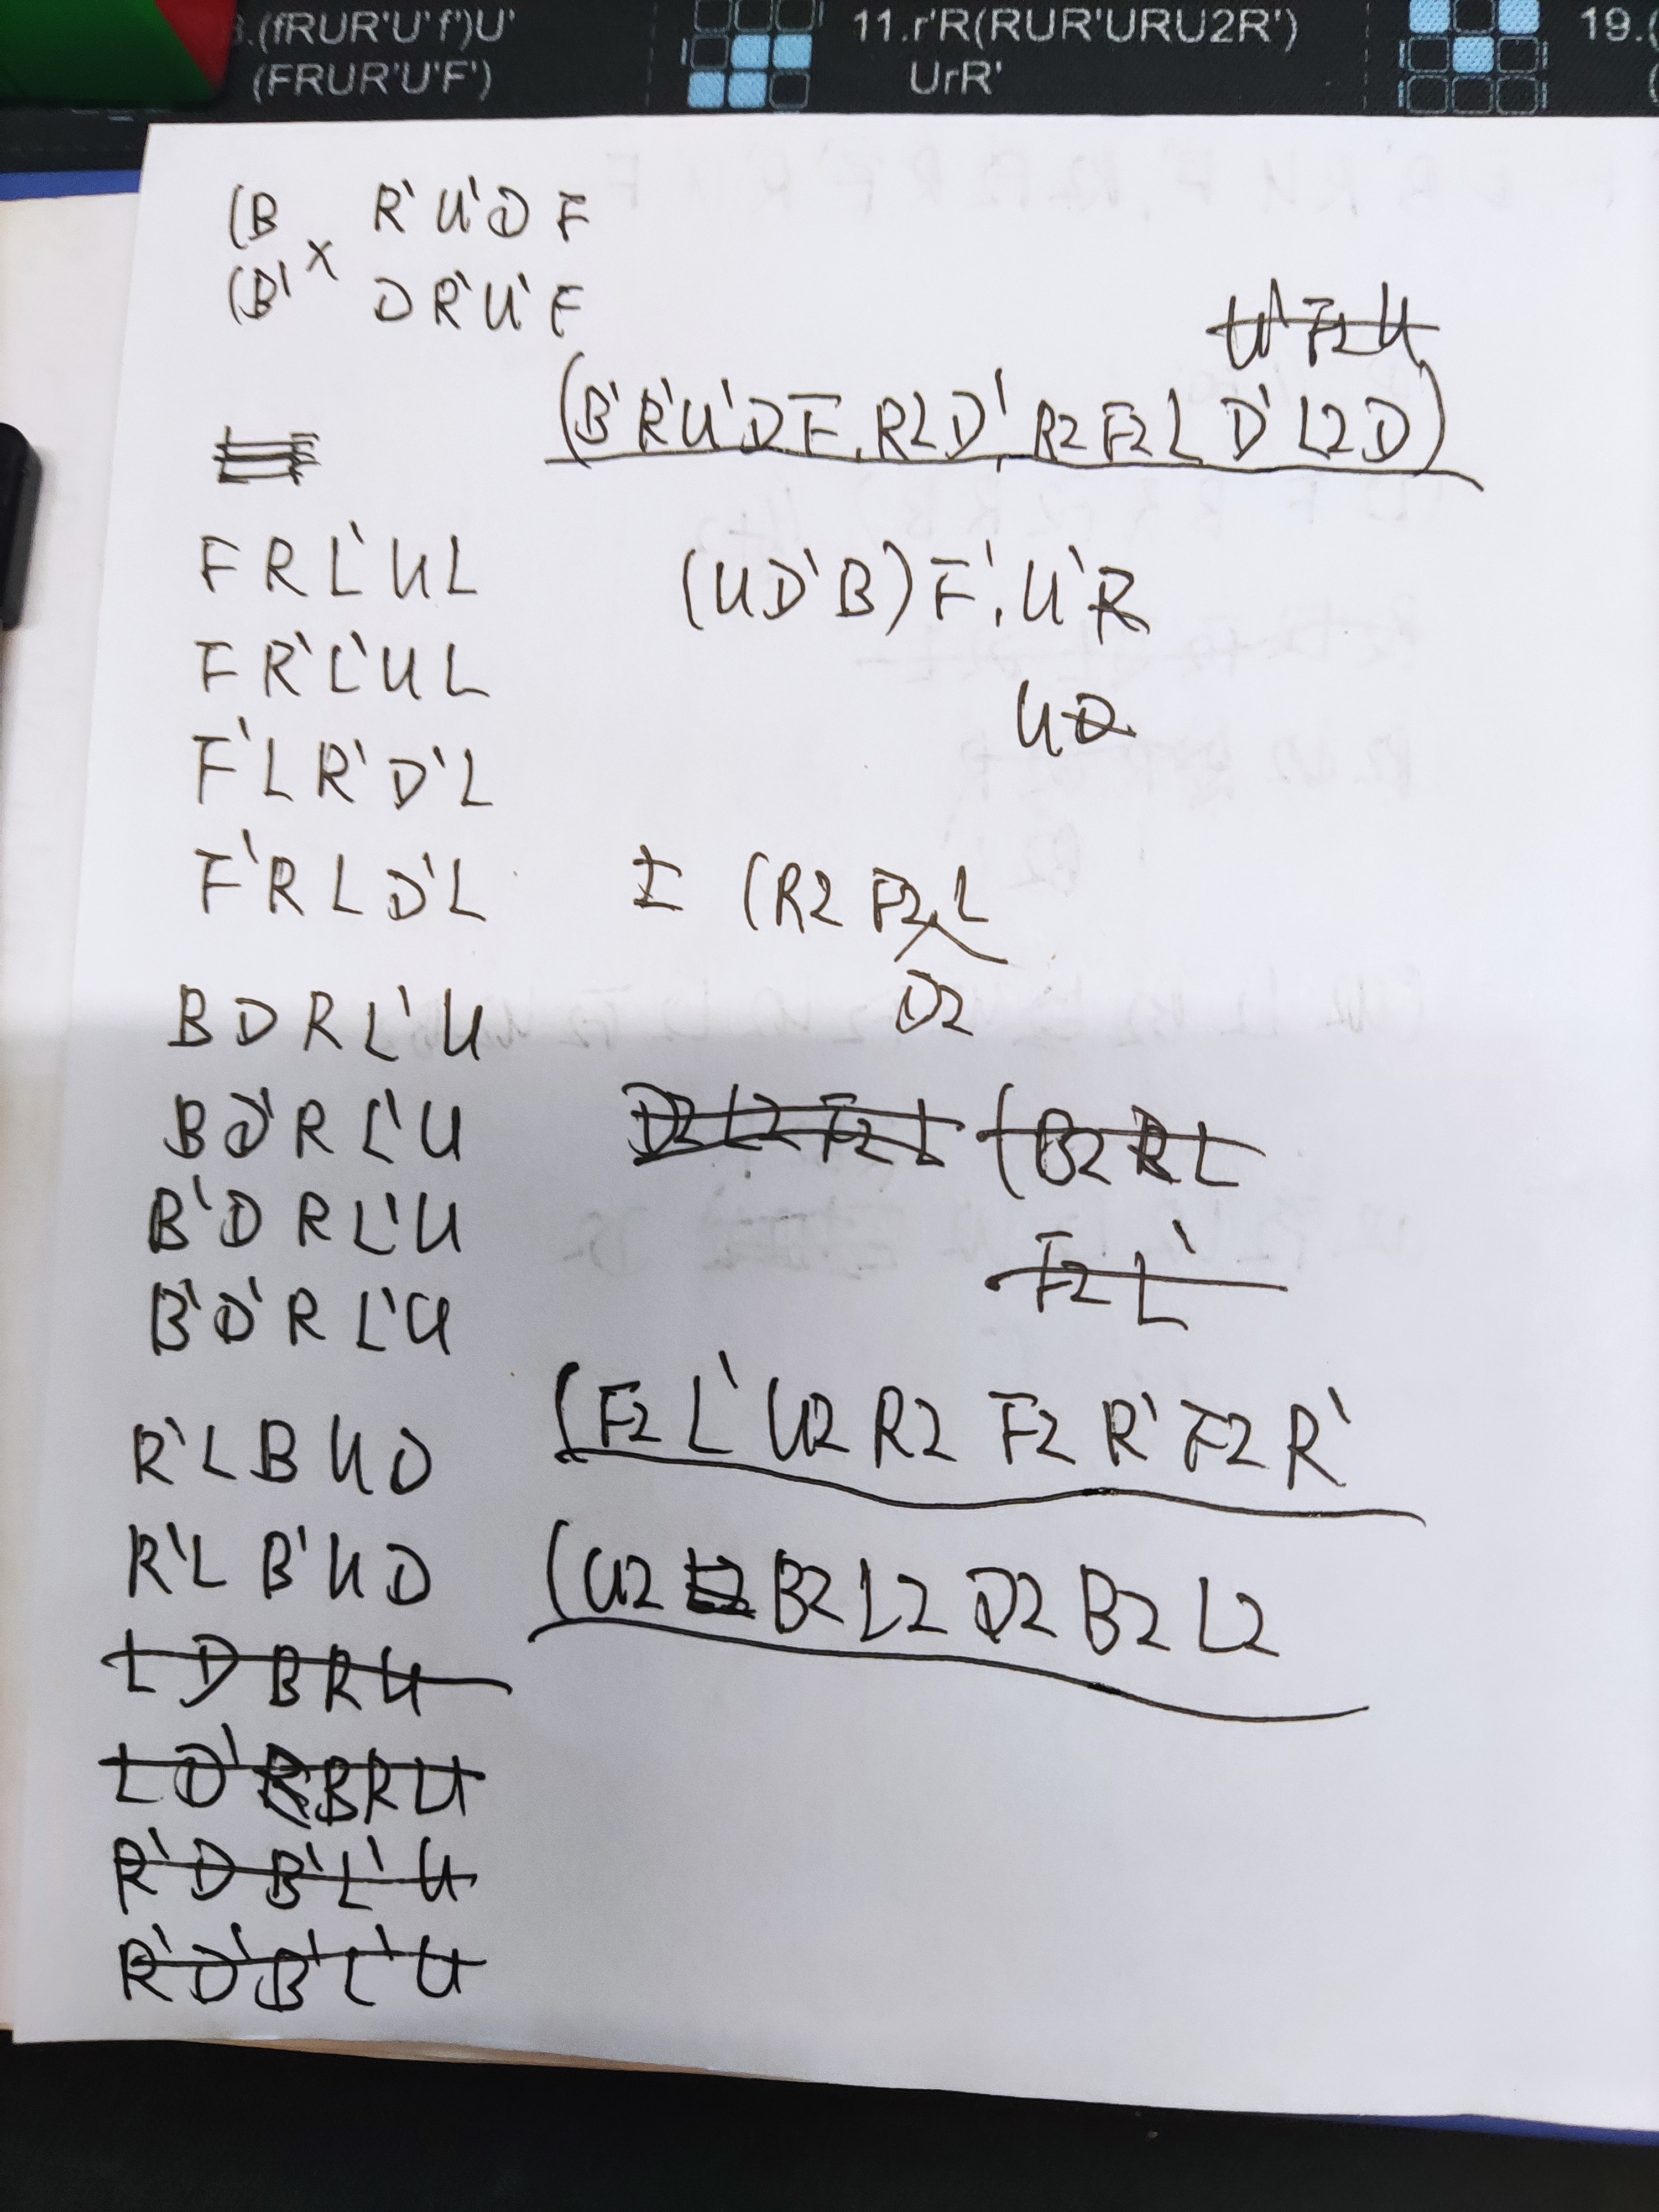 3.(fRUR'U'f')U'
(FRUR'U'F')
11.r'R(RUR'URU2R')
UrR'
19.(
(
(B R' U' D F
X
(B' D R' U' F
U' F2 U
(B' R' U' D F, R2 D', R2 F2 L D' L2 D)
F R L' U L
(U D' B) F', U' R
F R' L' U L
U D
F' L R' D' L
F' R L D' L
± (R2 F2 L
D2
B D R L' U
B D' R L' U
D2 L2 F2 L (B2 R L
B' D R L' U
F2 L'
B' D' R L' U
(F2 L' U2 R2 F2 R' F2 R'
R' L B U D
R' L B' U D
(U2 B2 L2 D2 B2 L2
L D B R U
L D' B R U
R' D B' L' U
R' D' B' L' U